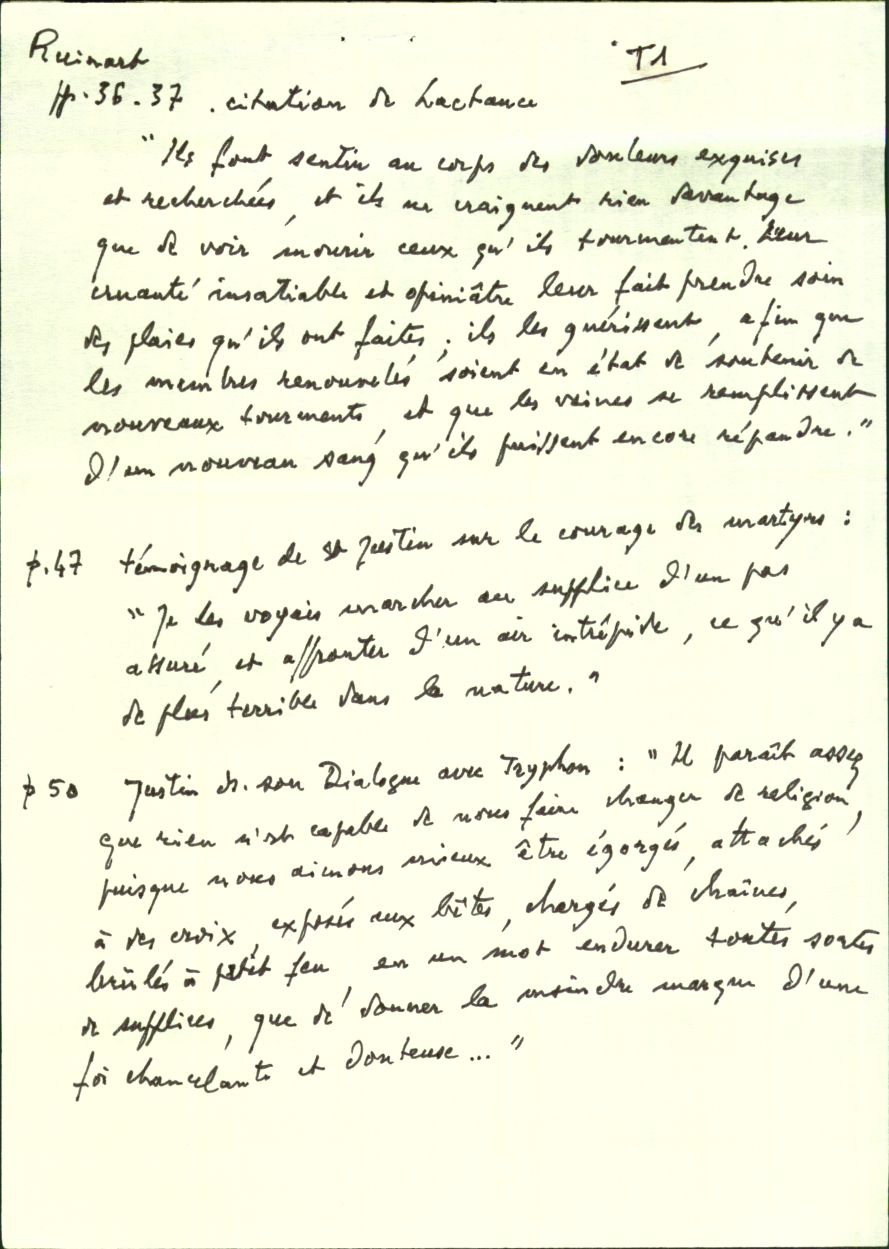 Ruinart
T1
pp. 36-37 . citation de Lactance
"Ils font sentir au corps des douleurs exquises
et recherchées, et ils ne craignent rien davantage
que de voir mourir ceux qu'ils tourmentent. Leur
cruauté insatiable et opiniâtre leur fait prendre soin
des plaies qu'ils ont faites ; ils les guérissent, afin que
les membres renouvelés soient en état de soutenir de
nouveaux tourments, et que les veines se remplissent
d'un nouveau sang qu'ils puissent encore répandre."
p.47 témoignage de St Justin sur le courage des martyrs :
"Je les voyais marcher au supplice d'un pas
assuré, et affronter d'un air intrépide, ce qu'il y a
de plus terrible dans la nature."
p 50 Justin ds. son Dialogue avec Tryphon : "Il paraît assez
que rien n'est capable de nous faire changer de religion,
puisque nous aimons mieux être égorgés, attachés
à des croix, exposés aux bêtes, chargés de chaînes,
brûlés à petit feu, en un mot endurer toutes sortes
de supplices, que de donner la moindre marque d'une
foi chancelante et douteuse..."